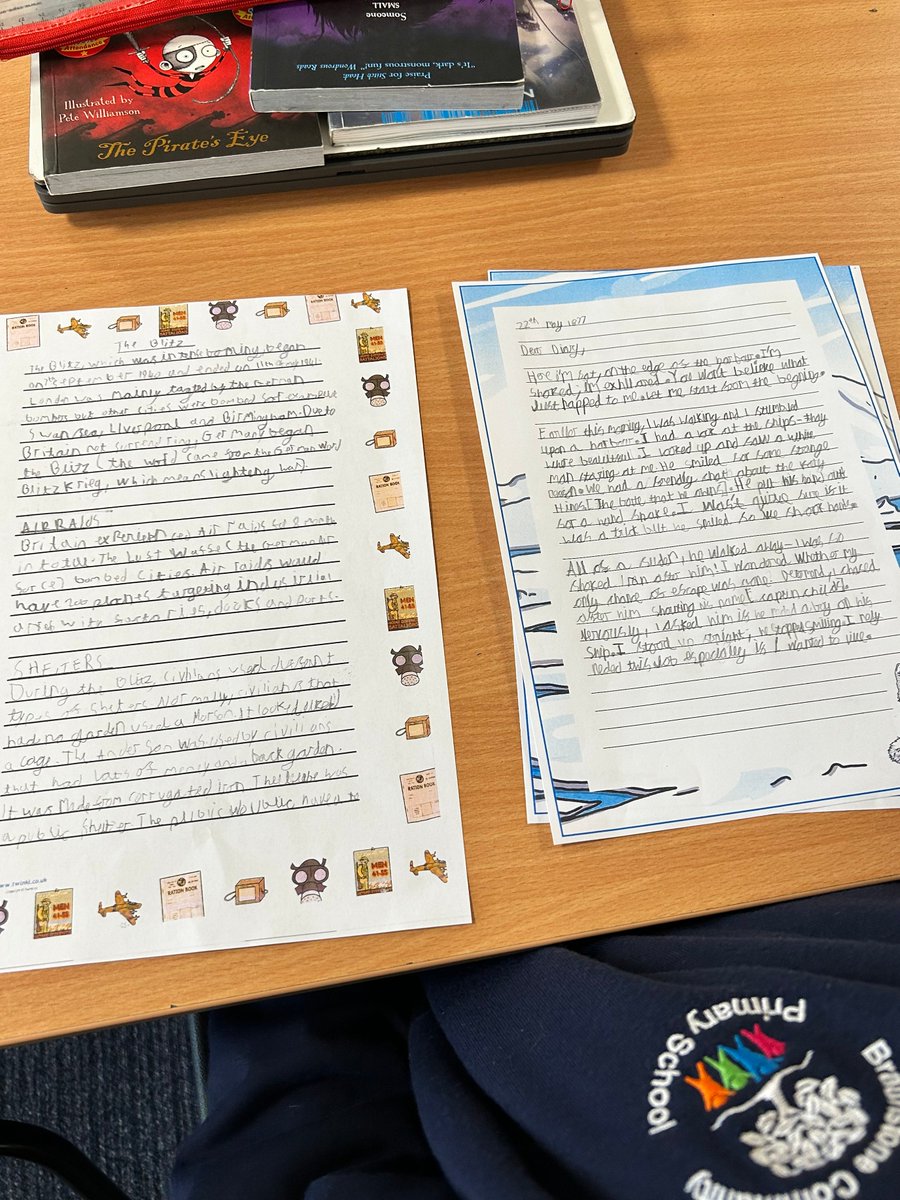 Attendance
Illustrated by
Pete Williamson
The Pirate's Eye
Someone
SMALL
"It's dark, monstrous fun!" Wondrous Reads
Praise for Stitch Head:
The Blitz
The Blitz, which was in the bominy began
and ended on
London was mainly taged by the German
bombs but other cities were bombed for example
Swansea, Liverpool and Birmingham. Due to
Britain not surrending, Germany began
the Blitz (the word came from the German word
Blitzkrieg, which means lightening war).
AIR RAIDS
Britain experienced Air raids for 8 month
in total. The
force) bombed cities. Air raids would
have 200 planes targeting industrial
docks and ports.
SHELTERS
During the Blitz, used
types of shelters. Normally, civilians that
had no garden used a Morson. It looked like
a cage. The Anderson was used by civilians
that had lots of money and a back garden.
It was Made from corrugated iron. The was
a public shelter The public have to
www.twinkl.co.uk
RATION BOOK
MEN
41-55
22nd May 1877
Dear Diary,
Here I'm sat, on the edge of the harbour. I'm
shoked; I'm You won't believe what
Just happed to me. Let me start from the begning.
this I was walking and I stumbled
upon a harbour. I had a look at the ships - they
were beautifull. I looked up and saw a white
man staring at me. He smiled for some strange
reason. We had a frendly chat about the
things! The boats that he owns! He put his hand out
for a hand shake. I wasn't quiwe sure if it
was a trick but he smiled so we shook hands.
All of a suden, he walked away - I was so
shoked I ran after him! I wondered. my
only chance of escape was gone. Desprond, I chased
after him shouting his name (captin childs).
Nervously, I asked him if he
ship. I stood up straight, he stopped smiling. I
needed this Job especially if I wanted to live.
Primary School
Community